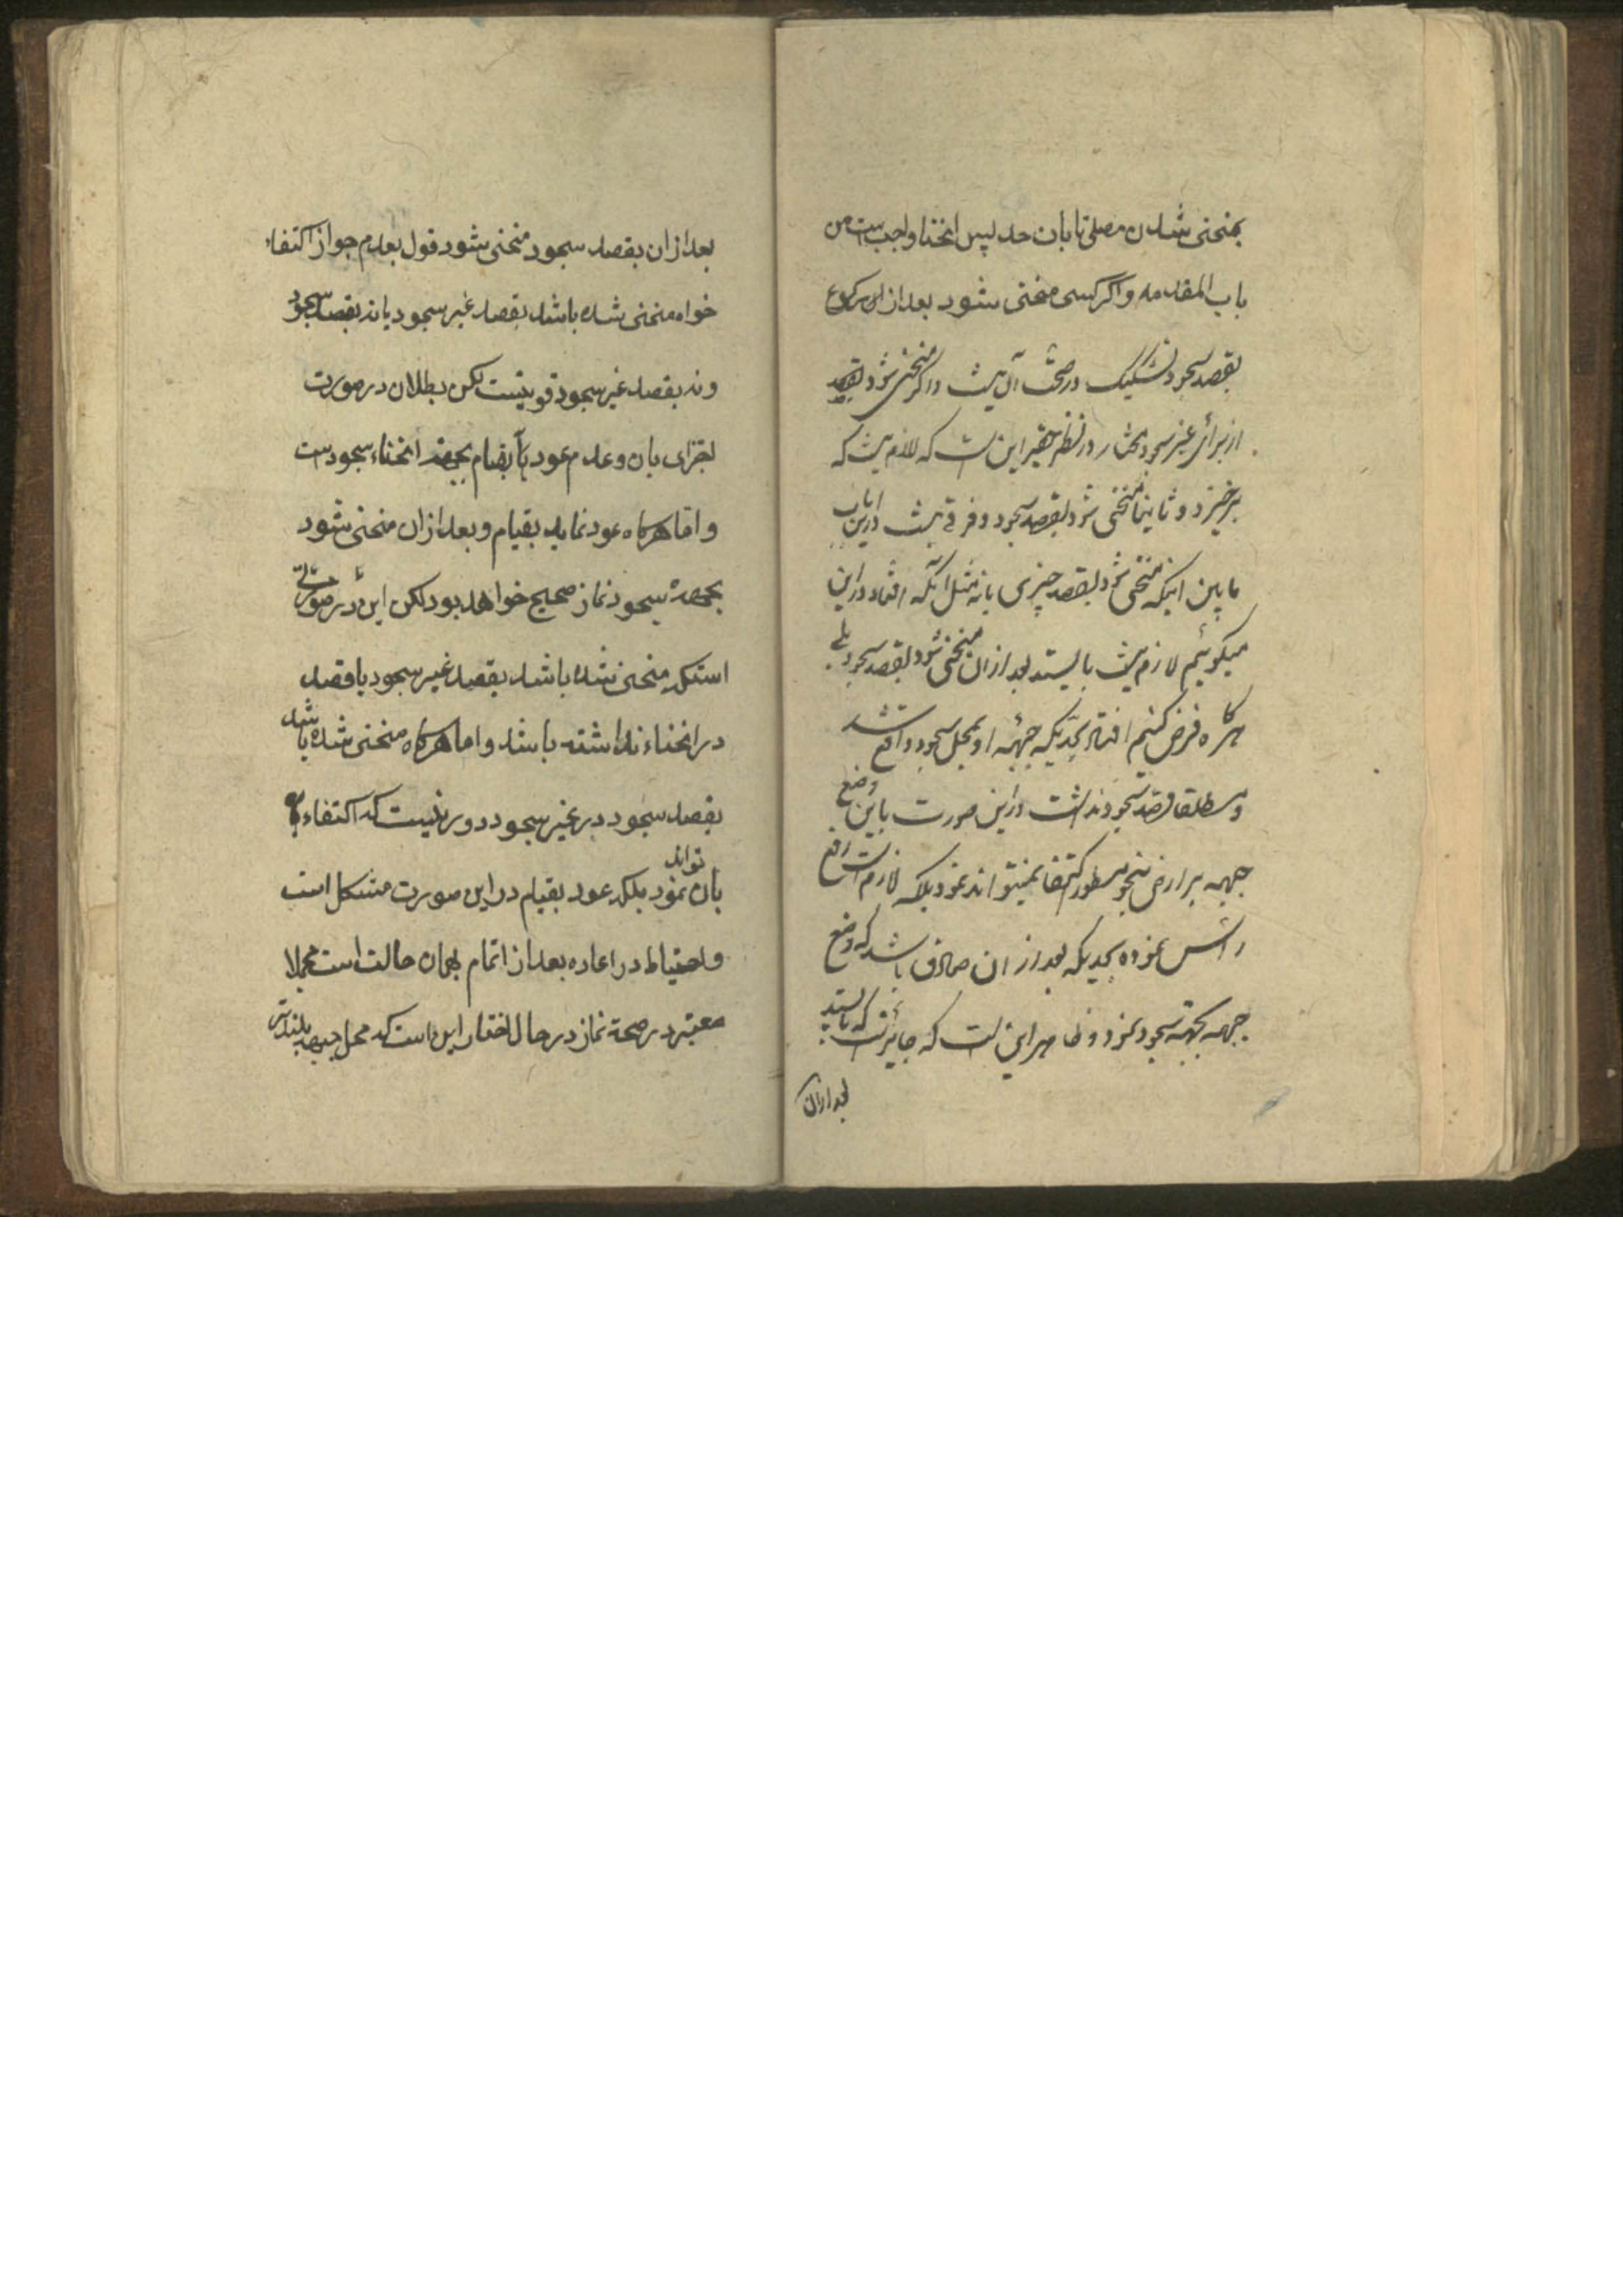 بمنحنی شدن مصلی تا بان حد لپس انحنا واجب است من
باب المقدمه واکر کسی منحنی شود بعد از رکوع
بقصد سجود تشکیک در صحت آن نیست واکر منحنی شود بقصد
از برای غیر سجود مختار در نظر حقیر این است که لازم نیست که
برخیزد و ثانیا منحنی شود بقصد سجود و فرقی نیست در این باب
مابین اینکه منحنی شود بقصد چیزی یا نه مثل آنکه افتاد در این
میکوئیم لازم نیست بایستد بعد از ان منحنی شود بقصد سجود بلی
هرکاه فرض کنیم افتاد بحدیکه جبهه او بمحل سجود واقع شد
و مطلقا قصد سجود نداشت در این صورت باین وضع
جبهه بر ارض بنحو مسطور اکتفا نمیتواند نمود بلکه لازم است رفع
راس نموده بحدیکه بعد از ان صادق باشد که وضع
جبهه بجهة سجود نمود و ظاهر این است که جایز است که بایستد
بعد از ان
بعد از ان بقصد سجود منحنی شود قول بعدم جواز اکتفاء
خواه منحنی شده باشد بقصد غیر سجود یا نه بقصد سجود
ونه بقصد غیر سجود قوی نیست لکن بطلان در صورت
اجتزای بان وعدم عود بقیام بجهة انحناء سجود است
و اما هرکاه عود نماید بقیام و بعد از ان منحنی شود
بجهة سجود نماز صحیح خواهد بود لکن این در صورتی
استکه منحنی شده باشد بقصد غیر سجود یا قصد
در انحناء نداشته باشد و اما هرکاه منحنی شده باشد
بقصد سجود در غیر سجود دور نیست که اکتفاء
بان تواند نمود بلکه عود بقیام در این صورت مشکل است
و احتیاط در اعاده بعد از اتمام بهمان حالت است مجملا
معتبر در صحة نماز در حال اختیار این است که محل جبهه بلندتر